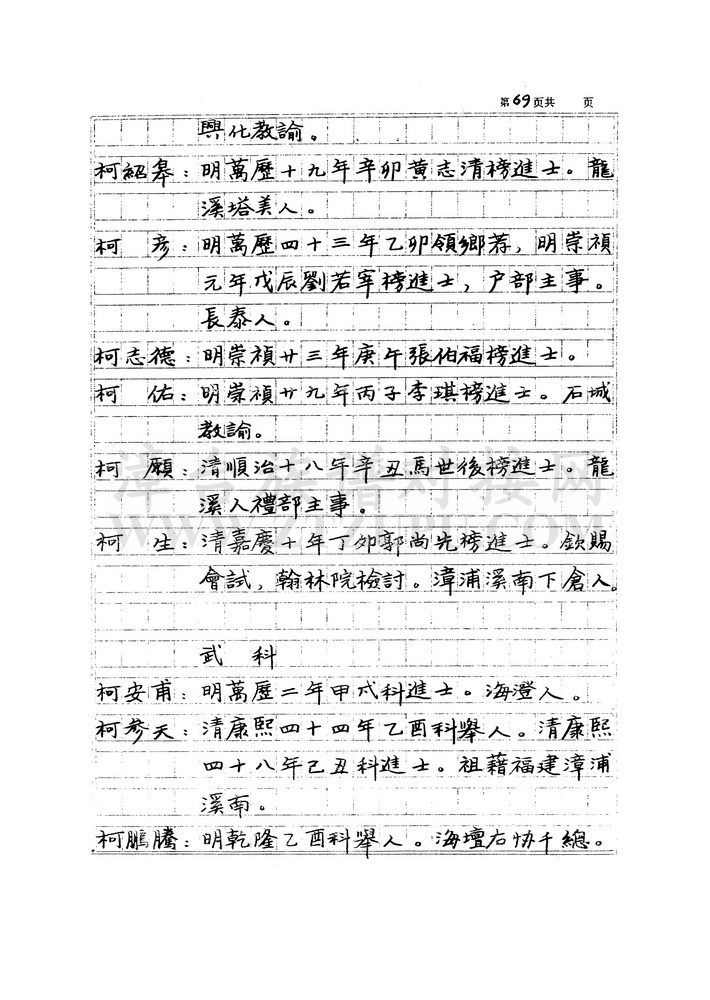 第69页共 页
興化教諭。
柯紹皋：明萬歷十九年辛卯黄志清榜進士。龍
溪塔美人。
柯 彦：明萬歷四十三年乙卯領鄉荐，明崇禎
元年戊辰劉若宰榜進士，户部主事。
長泰人。
柯志德：明崇禎廿三年庚午張伯福榜進士。
柯 佑：明崇禎廿九年丙子李琪榜進士。石城
教諭。
柯 願：清順治十八年辛丑馬世後榜進士。龍
溪人禮部主事。
柯 生：清嘉慶十年丁卯郭尚先榜進士。欽賜
會試，翰林院檢討。漳浦溪南下倉人。
武 科
柯安甫：明萬歷二年甲戌科進士。海澄人。
柯參天：清康熙四十四年乙酉科舉人。清康熙
四十八年己丑科進士。祖藉福建漳浦
溪南。
柯鵬騰：明乾隆乙酉科舉人。海壇右協千總。
漳台族譜对接网